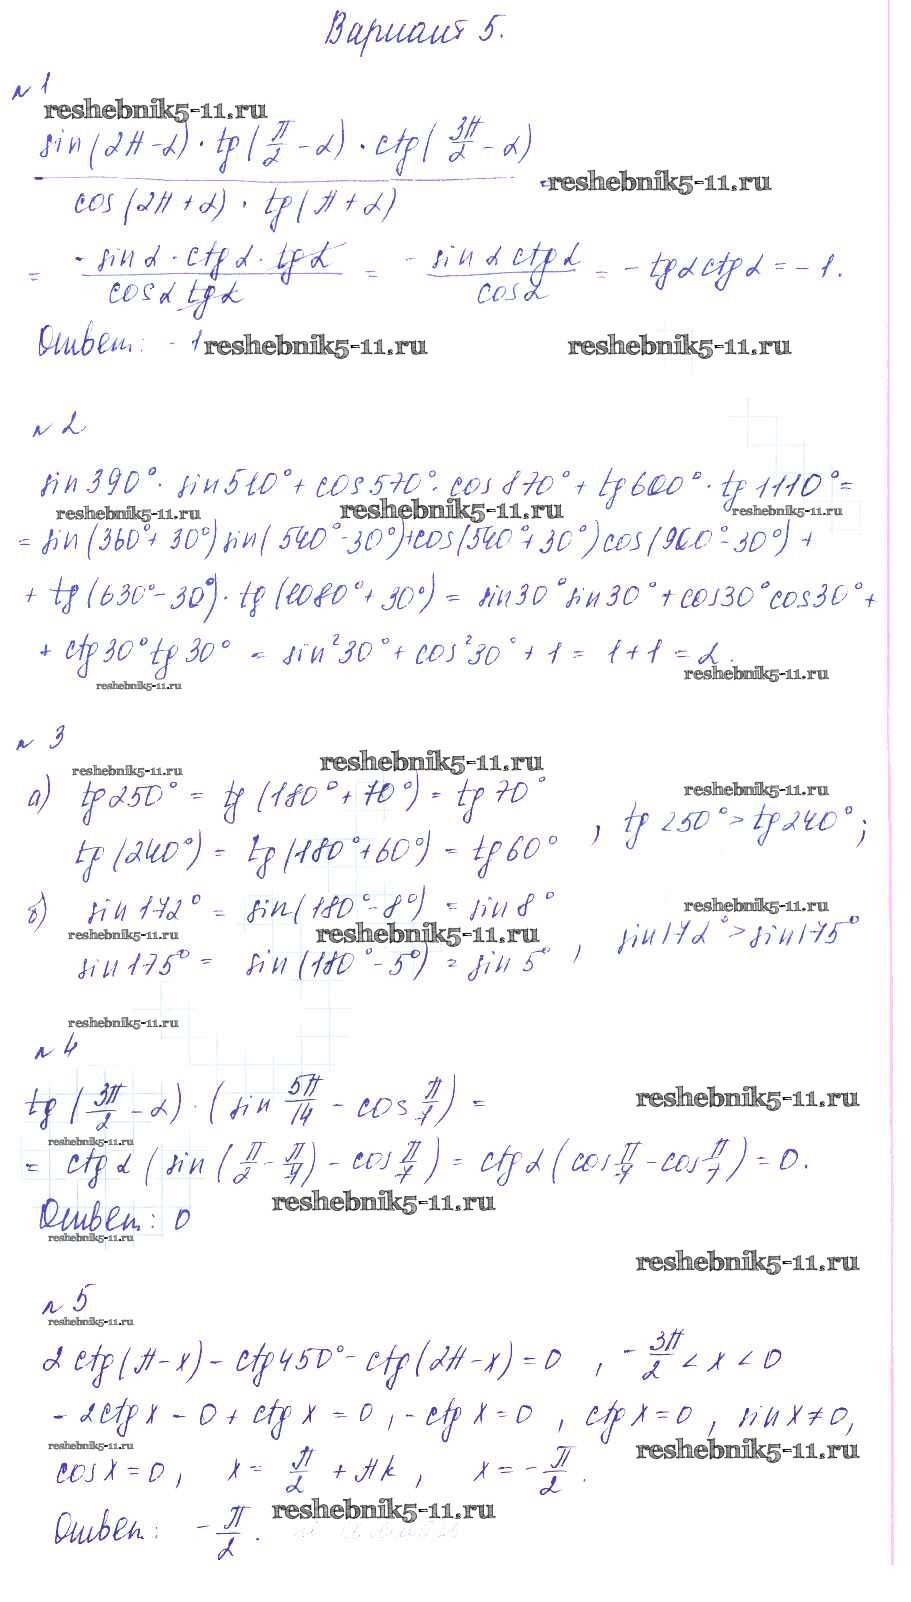 Вариант 5.
№ 1
reshebnik5-11.ru
sin(2π-α)·tg(π/2-α)·ctg(3π/2-α)
reshebnik5-11.ru
cos(2π+α)·tg(π+α)
= -sinα·ctgα·tgα / cosα tgα = -sinα ctgα / cosα = -tgα ctgα = -1.
Ответ: -1
reshebnik5-11.ru reshebnik5-11.ru
№ 2
sin390°·sin510°+cos570°·cos870°+tg600°·tg1110°=
reshebnik5-11.ru reshebnik5-11.ru reshebnik5-11.ru
= sin(360°+30°)sin(540°-30°)+cos(540°+30°)cos(900°-30°)+
+ tg(630°-30°)·tg(1080°+30°) = sin30°sin30°+cos30°cos30°+
+ ctg30°tg30° = sin²30°+cos²30°+1 = 1+1 = 2.
reshebnik5-11.ru reshebnik5-11.ru
№ 3
reshebnik5-11.ru reshebnik5-11.ru
а) tg250° = tg(180°+70°) = tg70°
reshebnik5-11.ru
, tg250°>tg240°;
tg(240°) = tg(180°+60°) = tg60°
б) sin172° = sin(180°-8°) = sin8°
reshebnik5-11.ru
reshebnik5-11.ru reshebnik5-11.ru
, sin172°>sin175°
sin175° = sin(180°-5°) = sin5°
reshebnik5-11.ru
№ 4
tg(3π/2-α)·(sin 5π/14 - cos π/7) =
reshebnik5-11.ru
reshebnik5-11.ru
= ctgα(sin(π/2-π/7)-cos π/7) = ctgα(cos π/7-cos π/7) = 0.
reshebnik5-11.ru
Ответ: 0
reshebnik5-11.ru
reshebnik5-11.ru
№ 5
reshebnik5-11.ru
2ctg(π-x)-ctg450°-ctg(2π-x)=0, -3π/2<x<0
-2ctgx-0+ctgx=0, -ctgx=0, ctgx=0, sinx≠0,
reshebnik5-11.ru reshebnik5-11.ru
cosx=0, x=π/2+πk, x=-π/2.
reshebnik5-11.ru
Ответ: -π/2.